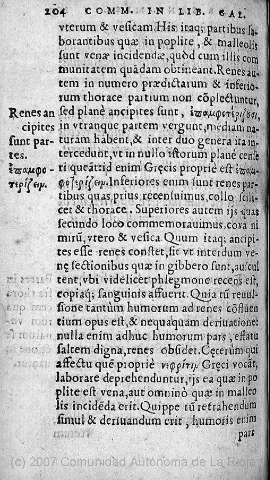 204 COMM. IN LIB. GAL.
vterum & vesicam. His itaq; partibus la
borantibus quæ in poplite, & malleolis
sunt venæ incidendæ, quòd cum illis com
munitatem quãdam obtineant. Renes au-
tem in numero prædictarum & inferio
rum thorace partium non cõplectuntur,
Renes an
cipites
sunt par-
tes.
ἐπαμφο-
τερίζειν.
sed planè ancipites sunt, ἐπαμφοτερίζουσι,
in vtranque partem vergunt, mediam na-
turam habent, & inter duo genera ita in-
tercedunt, vt in nullo istorum planè cense
ri queãt: id enim Gręcis proprie est ἐπαμ-
φοτερίζειν. Inferiores enim sunt renes par-
tibus quas prius recensuimus, collo scili-
cet & thorace. Superiores autem ijs quas
secundo loco commemorauimus, coxa ni
mirũ, vtero & vesica Quum itaq; ancipi-
tes esse renes constet, sit vt interdum ve-
nę sectionibus quæ in gibbero sunt, auscul
tent, vbi videlicet phlegmone recens est,
copiaq; sanguinis affuerit. Quia tũ reuul-
sione tantum humorum ad renes cõfluen
tium opus est, & nequaquam deriuatione:
nulla enim adhuc humorum pars, effatu
saltem digna, renes obsidet. Cęterùm qui
affectu quẽ propriè νεφρῖτιν Gręci vocãt,
laborare deprehenduntur, ijs ea quæ in po
plite est vena, aut omninò quæ in malleo
lis incidẽda erit. Quippe tũ retrahendum
simul & deriuandum erit, humoris enim
pars
(c) 2007 Comunidad Autónoma de La Rioja